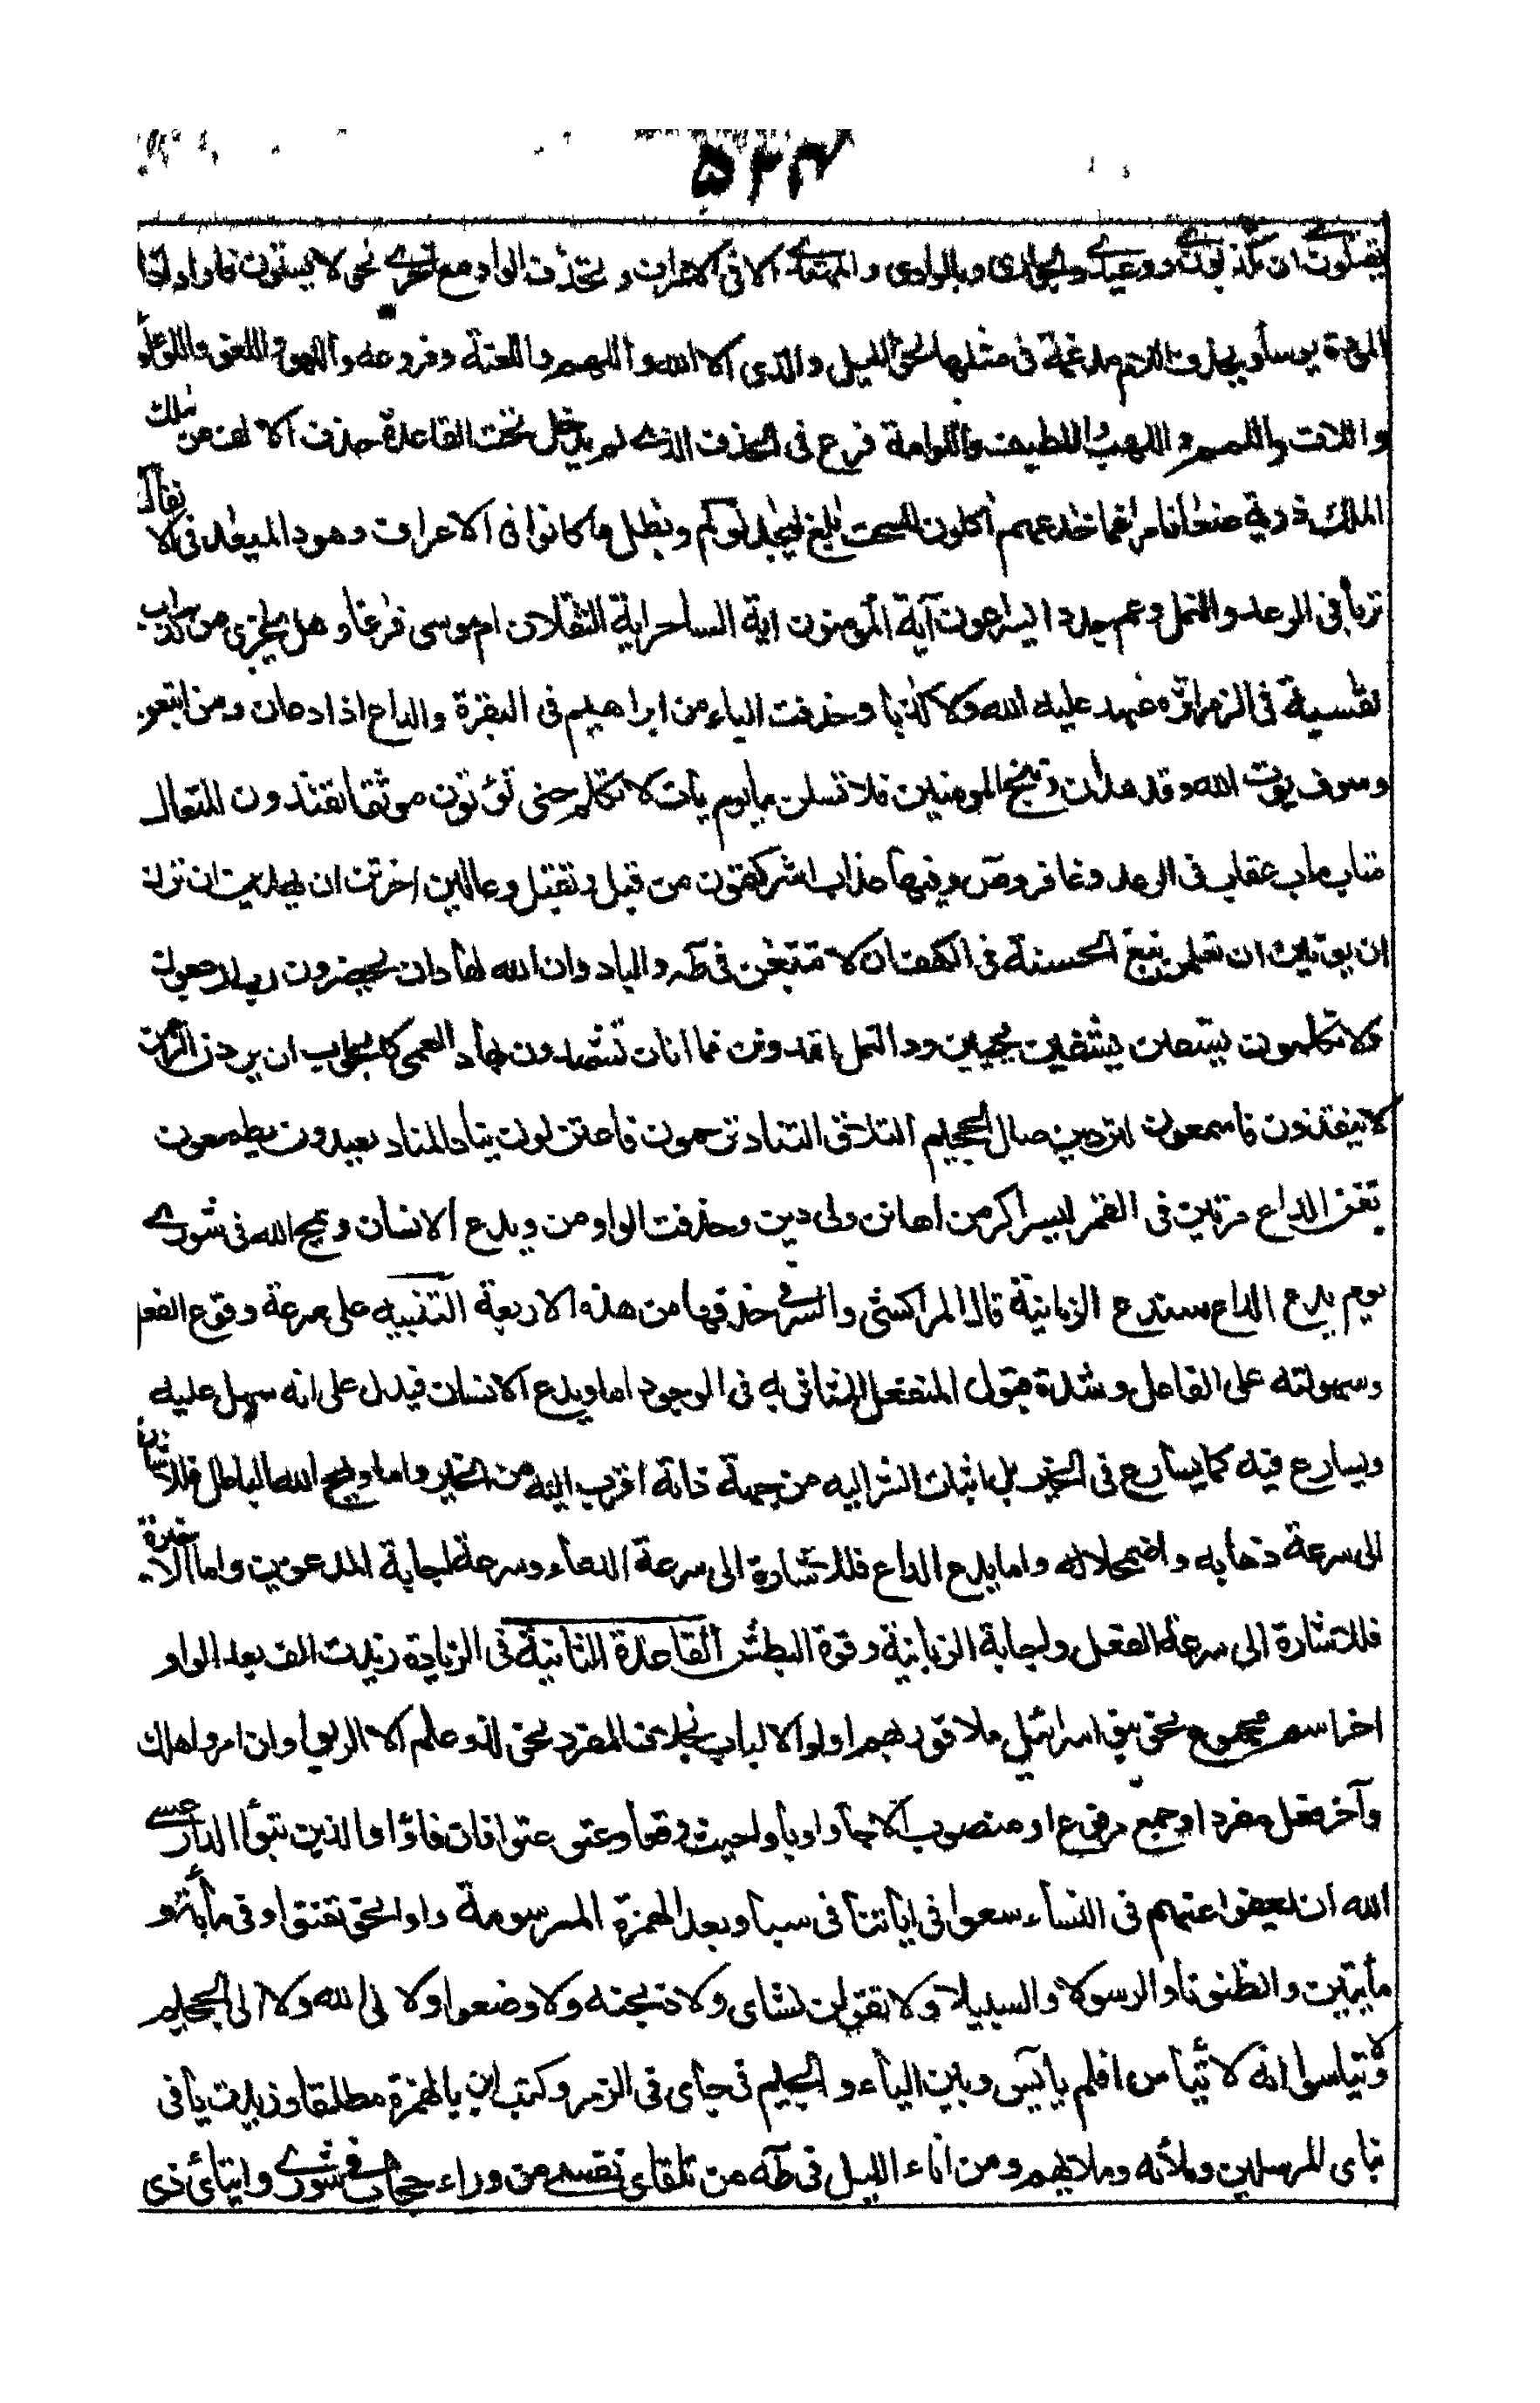 ۵۲۳
يقتلون ان يكذبون ووعيدے والجوارى وبالوادى والمهتدے الا فى الاعراف وتحذف الواو مع اخرے نحو لا يستون فاوا واذا
الموءدة يوسا ويحذف اللام مدغمة فى مثلها نحو الليل والذى الا الله واللهم واللعنة وفروعه واللهو واللغو واللؤلؤ
واللات واللمم واللهب واللطيف واللوامة فرع فى الحذف الذے لم يدخل تحت القاعدة حذف الالف من ملك
الملك ذرية ضعافا مراغما خدعهم اكلون للسحت بلغ ليجدلوكم وبطل ما كانوا فى الاعراف وهود الميعد فى الانفال
تربا فى الرعد والنمل وعم جددا يسرعون آية المؤمنون اية الساحر اية الثقلان ام موسى فرغا وهل يجزى من كذب
نقسية فى الزمر اثره عهد عليه الله ولا كذبا وحذفت الياء من ابراهيم فى البقرة والداع اذا دعان ومن اتبعن
وسوف يوت الله وقد هدان وننج المومنين فلا تسلن ما يوم يات لا تكلم حتى تؤتون موثقا تفندون المتعال
متاب ماب عقاب فى الرعد وغافر وص وفيها عذاب اشركتمون من قبل وتقبل دعا لئن اخرتن ان يهدين ان ترن
ان يوتين ان تعلمن نبغ الخمسة فى الكهف ان لا تتبعن فى طه والباد وان الله لهاد ان يحضرون رب ارجعون
ولا تكلمون يسقين يشفين يحيين واد النمل اتمدونن فما اتان تشهدون بهاد العمى كالجواب ان يردن الرحمن
لا ينقذون فاسمعون لتردين صال الجحيم التلاق التناد ترجمون فاعتزلون يناد المناد يعبدون يطعمون
تغن الداع مرتين فى القمر يسر اكرمن اهانن ولى دين وحذفت الواو من ويدع الانسان ويمح الله فى شورے
يوم يدع الداع سندع الزبانية قال المراكشى والسر فى حذفها من هذه الاربعة التنبيه على سرعة وقوع الفعل
وسهولته على الفاعل وشدة قبول المنفعل المتاثر به فى الوجود اما ويدع الانسان فيدل على انه سهل عليه
ويسارع فيه كما يسارع فى الخير بل اثبات الشر اليه من جهة ذاته اقرب اليه من الخير واما ويمح الله الباطل فللاشارة
الى سرعة ذهابه واضمحلاله واما يدع الداع فللاشارة الى سرعة الدعاء وسرعة اجابة المدعوين واما الاخيرة
فللاشارة الى سرعة الفعل واجابة الزبانية وقوة البطش القاعدة الثانية فى الزيادة زيدت الف بعد الواو
اخر اسم مجموع نحو بنوا اسرائيل ملاقو ربهم اولوا الالباب بخلاف المفرد نحو لذو علم الا الربوا وان امرؤا هلك
وآخر فعل مفرد او جمع مرفوع او منصوب الا جاوا وباوا حيث وقعا وعتو عتوا فان فاؤا والذين تبوؤا الدار عسے
الله ان يعفو عنهم فى النساء سعوا فى اياتنا فى سبا وبعد الهمزة المرسومة واوا نحو تفتؤا وفى مائة و
مائتين والظنونا والرسولا والسبيلا ولا تقولن لشاى ولا ذبحنه ولا وضعوا ولا الى الله ولا الى الجحيم
ولا تياسوا انه لا يياس افلم ياييس وبين الياء والجيم فى جاى فى الزمر وكتب ابن بالهمزة مطلقا وزيدت يا فى
نباى المرسلين وملائه وملايهم ومن اناء الليل فى طه من تلقاى نفسے من وراء حجاب فى شورے وايتائ ذى